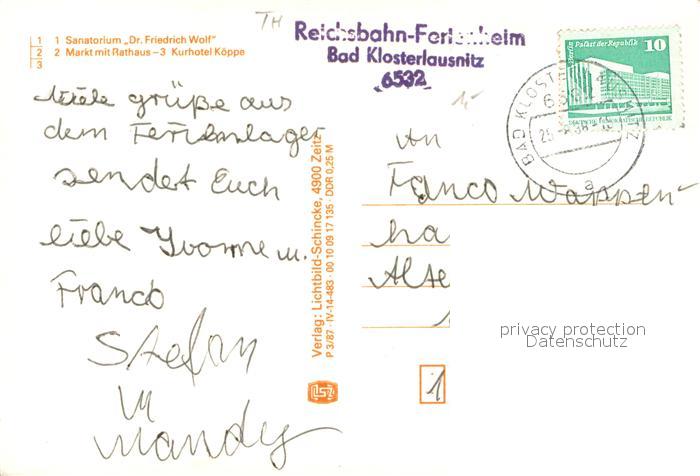 1 1 Sanatorium „Dr. Friedrich Wolf"
2 2 Markt mit Rathaus – 3 Kurhotel Köppe
3
TH
Reichsbahn-Ferienheim
Bad Klosterlausnitz
6532
Berlin Palast der Republik
10
DEUTSCHE DEMOKRATISCHE REPUBLIK
BAD KLOSTERLAUSNITZ
a
viele grüße aus
dem Ferienlager
sendet Euch
liebe Yvonne u.
Franco
Stefan
u
Mandy
Verlag: Lichtbild-Schincke, 4900 Zeitz
P 3/87 · IV-14-483 · 00 10 09 17 135 · DDR 0,25 M
An
Franco Wappen-
ha
Alte
1
1
privacy protection
Datenschutz